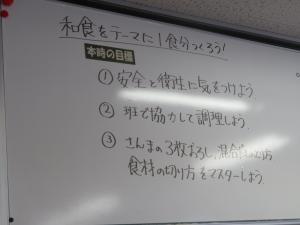 和食をテーマに1食分つくろう!
本時の目標
① 安全と衛生に気をつけよう
② 班で協力して調理しよう.
③ さんまの3枚おろし、混合
食材の切り方をマスターしよう.